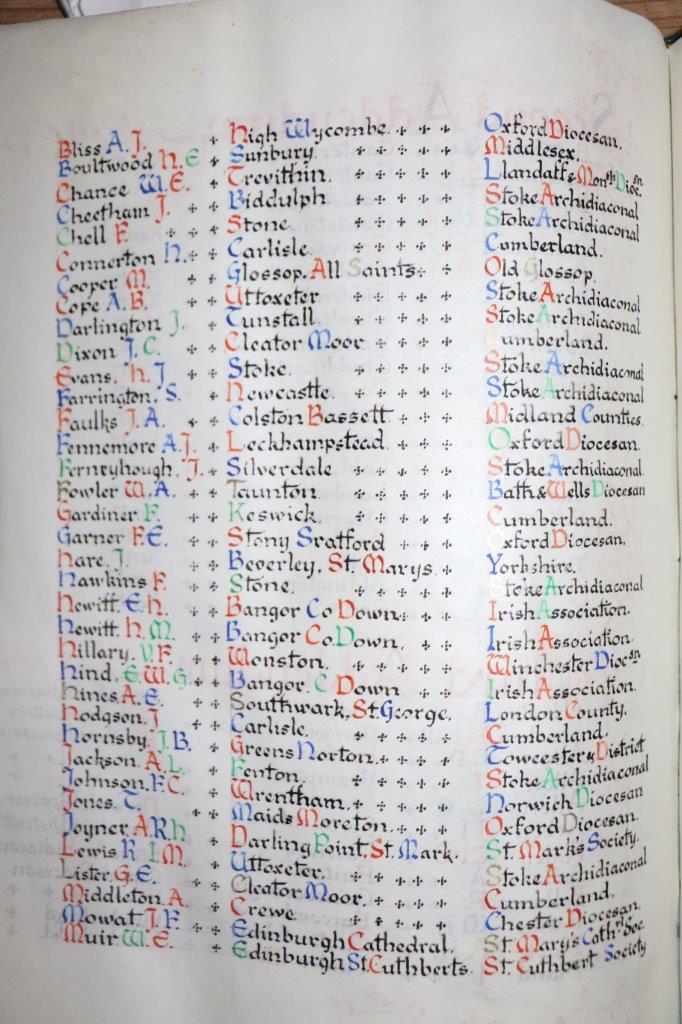 Bliss A.J. High Wycombe. Oxford Diocesan.
Boultwood H.E Sunbury. Middlesex.
Chance W.E. Trevithin. Llandaff & Monᵗʰ Diocˢⁿ
Cheetham J. Biddulph Stoke Archidiaconal
Chell F. Stone. Stoke Archidiaconal
Connerton H. Carlisle. Cumberland.
Cooper M. Glossop. All Saints. Old Glossop.
Cope A.B. Uttoxeter Stoke Archidiaconal
Darlington J. Tunstall Stoke Archidiaconal
Dixon J.C. Cleator Moor Cumberland.
Evans. H.J Stoke. Stoke Archidiaconal
Farrington. S. Newcastle. Stoke Archidiaconal
Faulks J.A. Colston Bassett Midland Counties.
Fennemore A.J. Leckhampstead Oxford Diocesan.
Ferneyhough. J. Silverdale Stoke Archidiaconal.
Fowler W.A. Taunton Bath & Wells Diocesan
Gardiner F. Keswick. Cumberland.
Garner F.E. Stony Sratford Oxford Diocesan.
Hare. J. Beverley. St Marys. Yorkshire.
Hawkins F. Stone. Stoke Archidiaconal
Hewitt. E.H. Bangor Co Down. Irish Association.
Hewitt. H.M. Bangor Co. Down. Irish Association.
Hillary. V.F. Wonston. Winchester Diocˢⁿ.
Hind. E.W.G. Bangor. C Down Irish Association.
Hines A.E. Southwark, St. George. London County.
Hodgson. J Carlisle. Cumberland.
Hornsby. J.B. Greens Norton. Towcester & District
Jackson. A.L. Fenton. Stoke Archidiaconal
Johnson. F.C. Wrentham. Norwich Diocesan
Jones. T. Maids Moreton. Oxford Diocesan.
Joyner. A.R.H. Darling Point, St. Mark. St. Mark's Society.
Lewis R.I.M. Uttoxeter. Stoke Archidiaconal
Lister G.E. Cleator Moor. Cumberland.
Middleton. A. Crewe. Chester Diocesan.
Mowat. J.F. Edinburgh Cathedral. St Mary's Cathˡ Soc.
Muir W.E. Edinburgh St. Cuthberts. St. Cuthbert Society